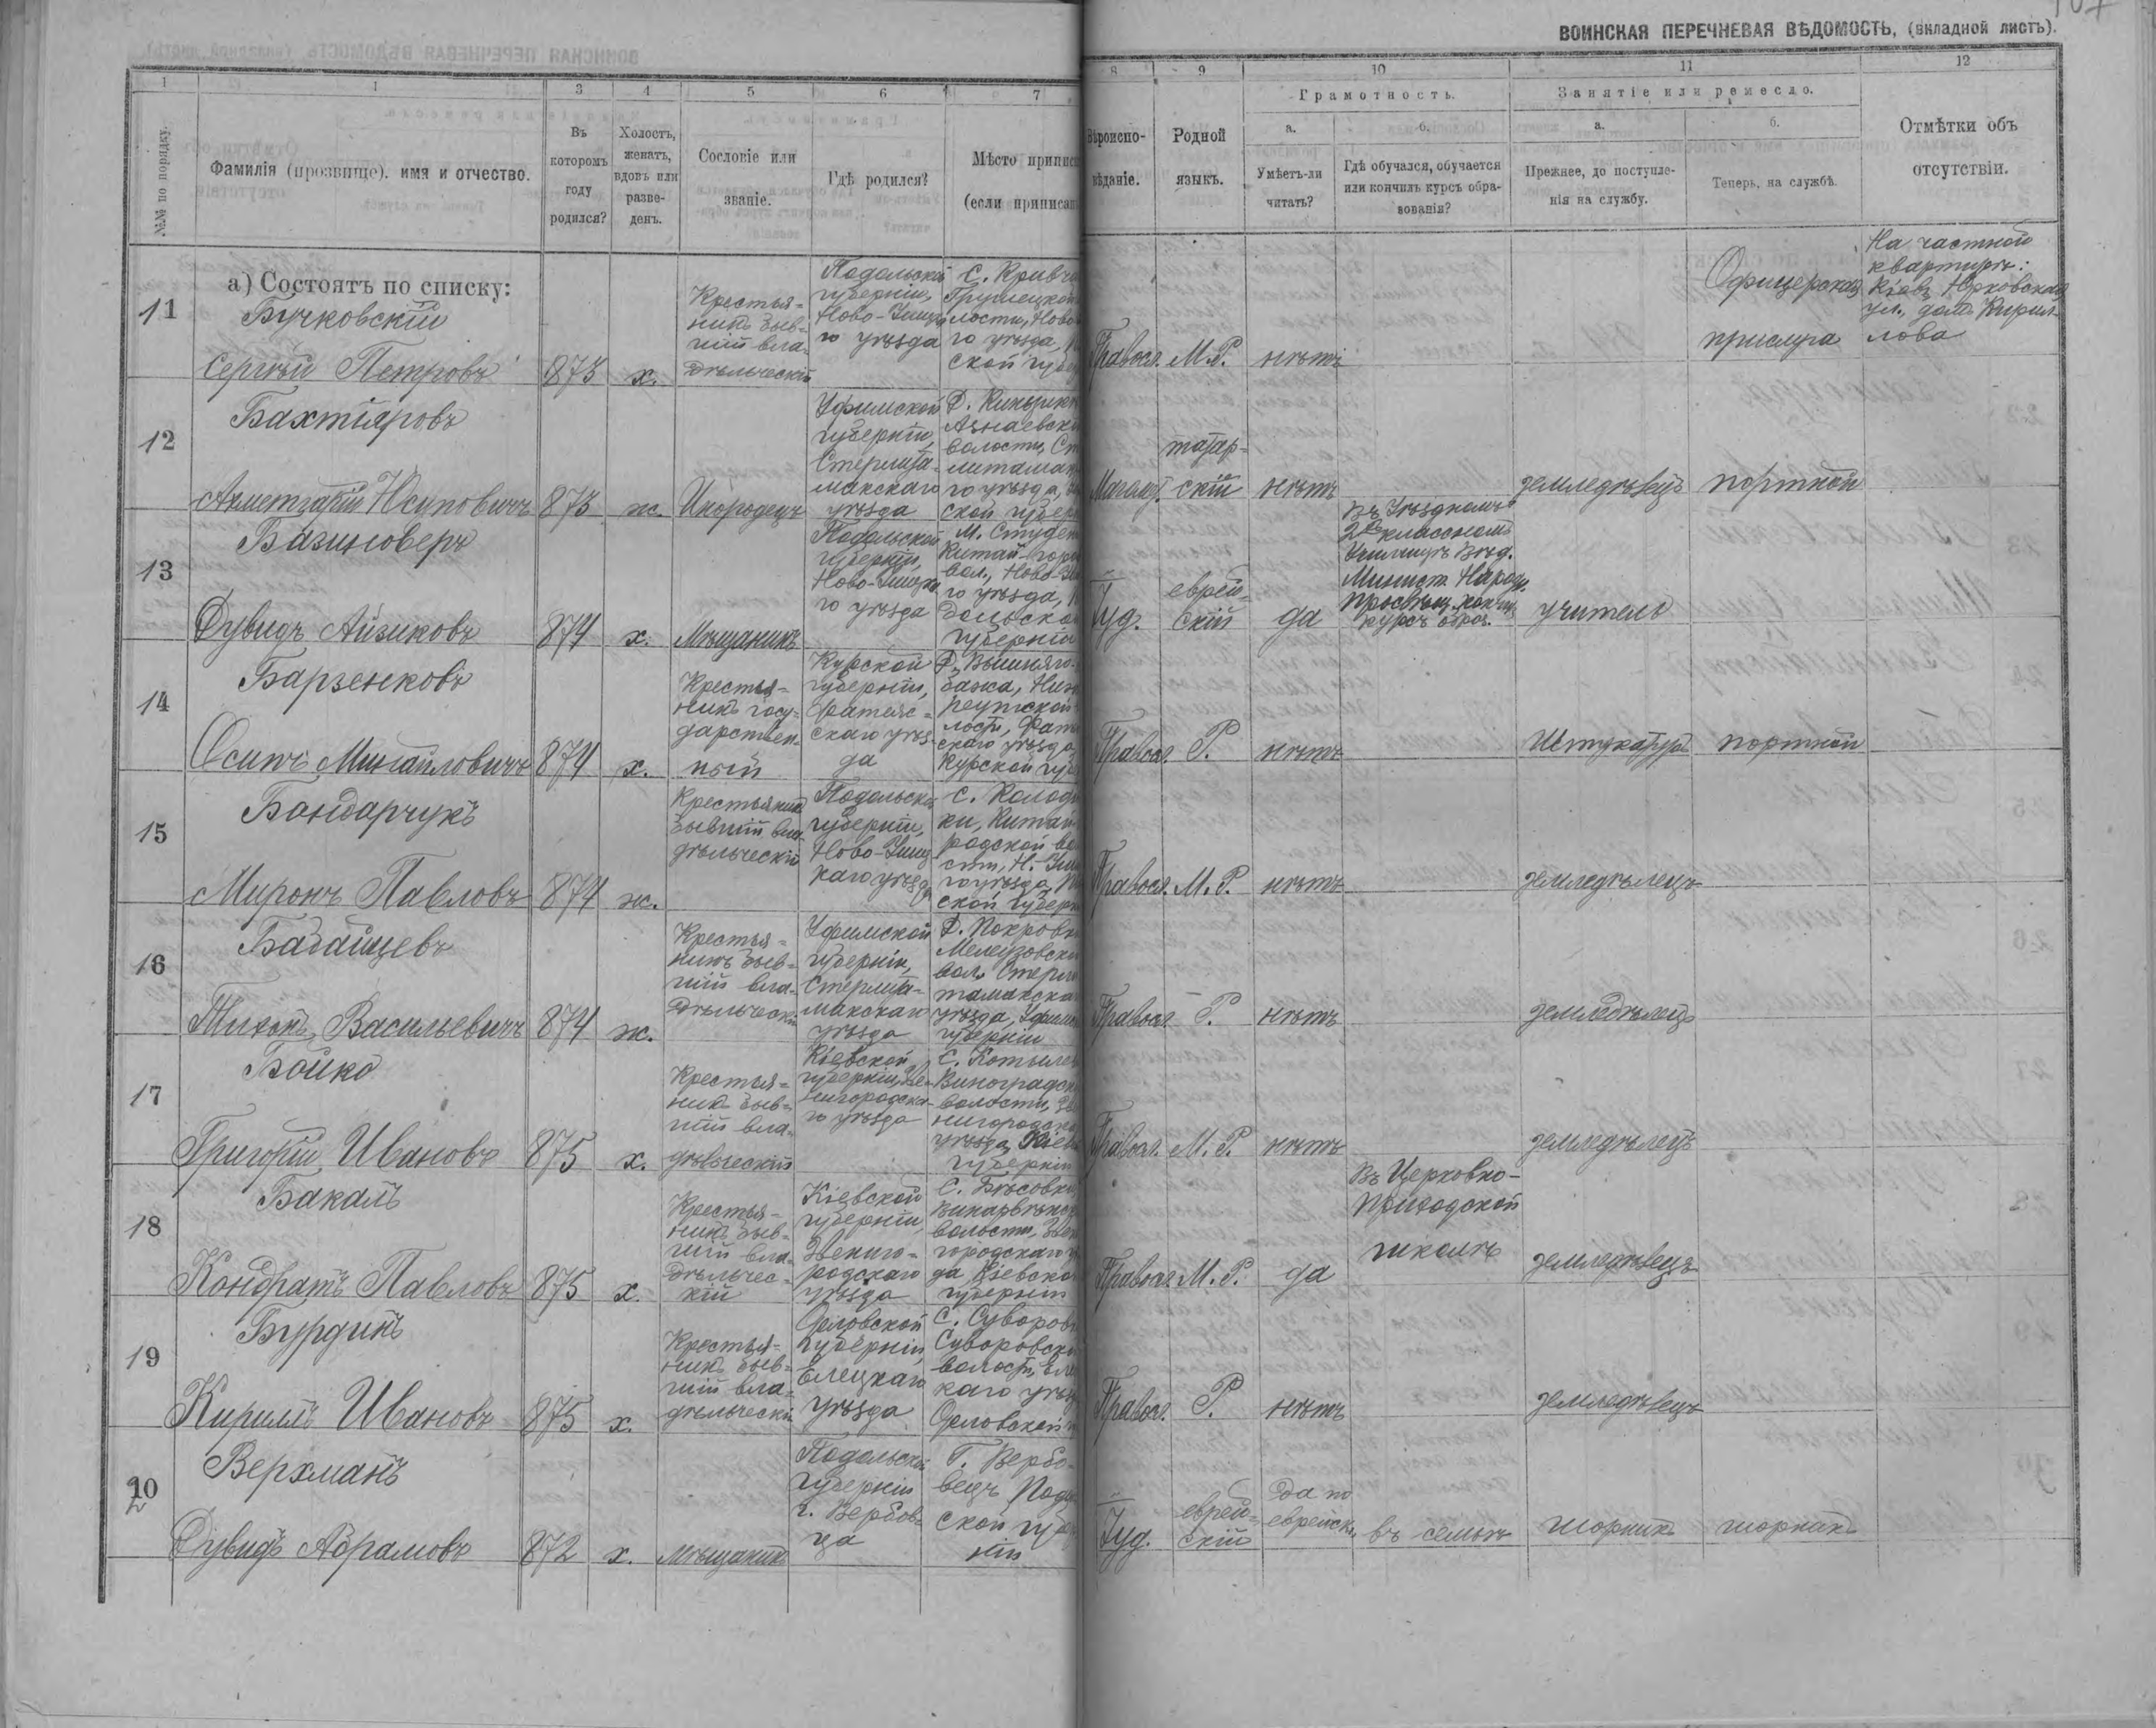 ВОИНСКАЯ ПЕРЕЧНЕВАЯ ВѢДОМОСТЬ, (вкладной листъ).
1 1 3 4 5 6 7 8 9 10 11 12
№№ по порядку.
Фамилія (прозвище). имя и отчество.
Въ
которомъ
году
родился?
Холостъ,
женатъ,
вдовъ или
разве-
денъ.
Сословіе или
званіе.
Гдѣ родился?
Мѣсто приписк
(если приписан
Вѣроиспо-
вѣданіе.
Родной
языкъ.
Грамотность.
а.
Умѣетъ-ли
читать?
б.
Гдѣ обучался, обучается
или кончилъ курсъ обра-
зованія?
Занятіе или ремесло.
а.
Прежнее, до поступле-
нія на службу.
б.
Теперь, на службѣ.
Отмѣтки объ
отсутствіи.
а) Состоятъ по списку:
11
Бучковскій
Сергѣй Петровъ
873
х.
Крестья-
нинъ быв-
шій вла-
дѣльческій
Подольской
губерніи,
Ново-Ушицка
го уѣзда
С. Кривча
лости, Ново
го уѣзда,
ской губе
Правосл.
М.Р.
нѣтъ
Офицерская
прислуга
На частной
квартирѣ:
Кіевъ Юрковская
ул., домъ Кирил-
лова
12
Бахтіяровъ
Ахметгабій Юсуповичъ
873
ж.
Инородецъ
Уфимской
губерніи,
Стерлита-
макскаго
уѣзда
Азнаевско
волости, Ст
литамак
го уѣзда,
ской губер
Магомет.
татар-
скій
нѣтъ
земледѣлецъ
портной
13
Базиловеръ
Дувидъ Айзиковъ
874
х.
Мѣщанинъ
Подольской
губерніи,
Ново-Ушицка
го уѣзда
М. Студен
Китай-горо
вол., Ново-Уш
го уѣзда,
дольско
губерніи
Іуд.
еврей-
скій
да
Въ Уѣздномъ
2хклассномъ
Училищѣ Вѣд.
Минист. Народ.
Просвѣщ. кончилъ
курсъ образ.
учитель
14
Барзенковъ
Осипъ Михайловичъ
874
х.
Крестья-
нинъ госу-
дарствен-
ный
Курской
губерніи,
Фатеж-
скаго уѣз-
да
скаго уѣзда,
Курской губе
Правосл.
Р.
нѣтъ
Штукатуръ
портной
15
Бондарчукъ
Миронъ Павловъ
874
ж.
Крестьянинъ
бывшій вла-
дѣльческій
Подольской
губерніи,
Ново-Ушиц
каго уѣзда
С. Колодѣ
ки, Китай-
родской во
сти, Н.-Уш
го уѣзда,
ской губерн
Правосл.
М.Р.
нѣтъ
земледѣлецъ
16
Бабайцевъ
Тихонъ Васильевичъ
874
ж.
Крестья-
нинъ быв-
шій вла-
дѣльческій
Уфимской
губерніи,
Стерлита-
макскаго
уѣзда
Д. Покровк
Мелеузовско
вол. Стерли
тамакска
уѣзда, Уфимс
губерніи
Правосл.
Р.
нѣтъ
земледѣлецъ
17
Бойко
Григорій Ивановъ
875
х.
Крестья-
нинъ быв-
шій вла-
дѣльческій
Кіевской
губерніи, Зве-
нигородска-
го уѣзда
Виноградск
волости, Зве
нигородска
уѣзда, Кіевс
губерніи
Правосл.
М.Р.
нѣтъ
земледѣлецъ
18
Бакалъ
Кондратъ Павловъ
875
х.
Крестья-
нинъ быв-
шій вла-
дѣльчес-
кій
Кіевской
губерніи,
Звениго-
родскаго
уѣзда
волости, Звен
городскаго уѣз
да Кіевско
губерніи
Правосл.
М.Р.
да
Въ Церковно-
Приходской
школѣ
земледѣлецъ
19
Бурдинъ
Кирилъ Ивановъ
875
х.
Крестья-
нинъ быв-
шій вла-
дѣльческій
Орловской
губерніи,
Елецкаго
уѣзда
С. Суворов
Суворовско
волости, Еле
каго уѣзд
Орловской
Правосл.
Р.
нѣтъ
земледѣлецъ
20
Верхманъ
Дувидъ Абрамовъ
872
х.
Мѣщанинъ
Подольской
губерніи
г. Вербов-
ца
Г. Вербо-
вецъ Подо
ской губе
ніи
Іуд.
еврей-
скій
да по
еврейски
въ семьѣ
шорникъ
шорникъ